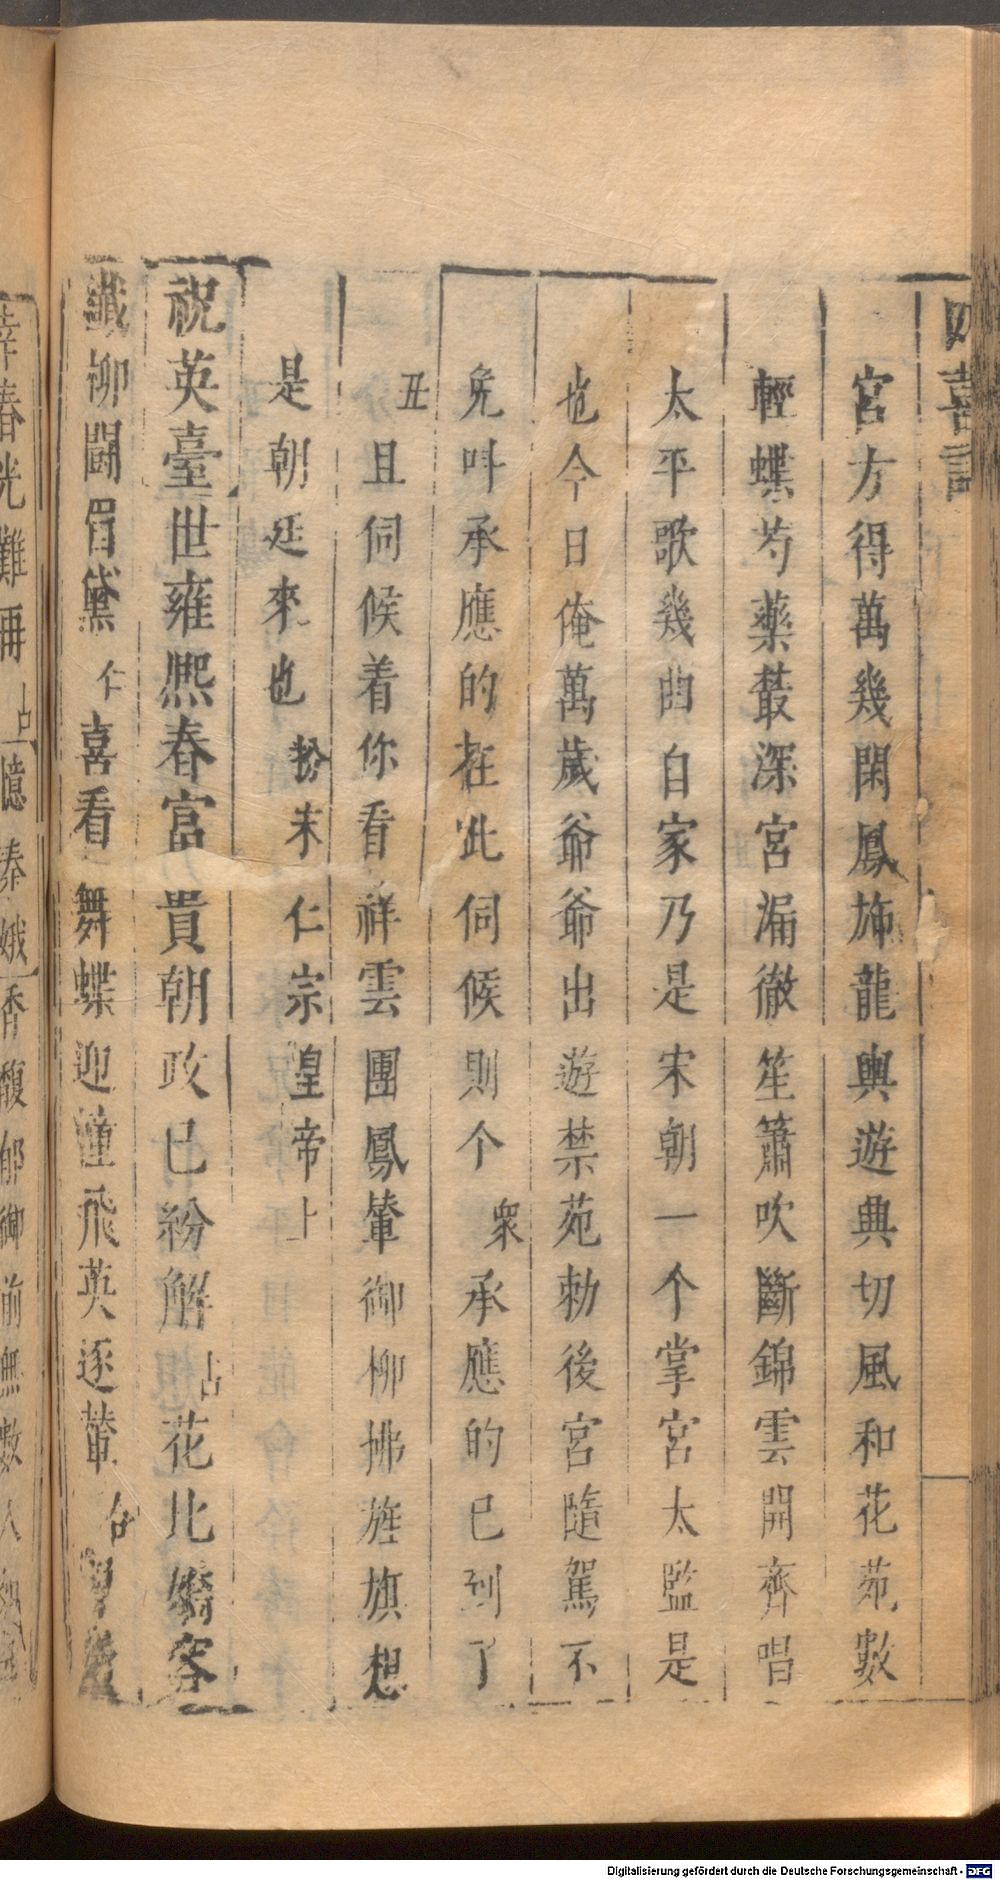 四喜記
宮方得萬幾閑鳳斾龍輿遊典切風和花苑數
輕蝶芍藥叢深宮漏徹笙簫吹斷錦雲開齊唱
太平歌幾曲自家乃是宋朝一个掌宮太監是
也今日俺萬歲爺爺出遊禁苑勅後宮隨駕不
免叫承應的在此伺候則个衆承應的已到了
丑且伺候着你看祥雲團鳳輦御柳拂旌旗想
是朝廷來也扮末仁宗皇帝上
祝英臺世雍熈春富貴朝政已紛解占花比嬌容
纖柳闘眉黛仁喜看舞蝶迎蓮飛英逐輦合
幸春光難再占憶秦娥香馥郁御前無數人
Digitalisierung gefördert durch die Deutsche Forschungsgemeinschaft - DFG